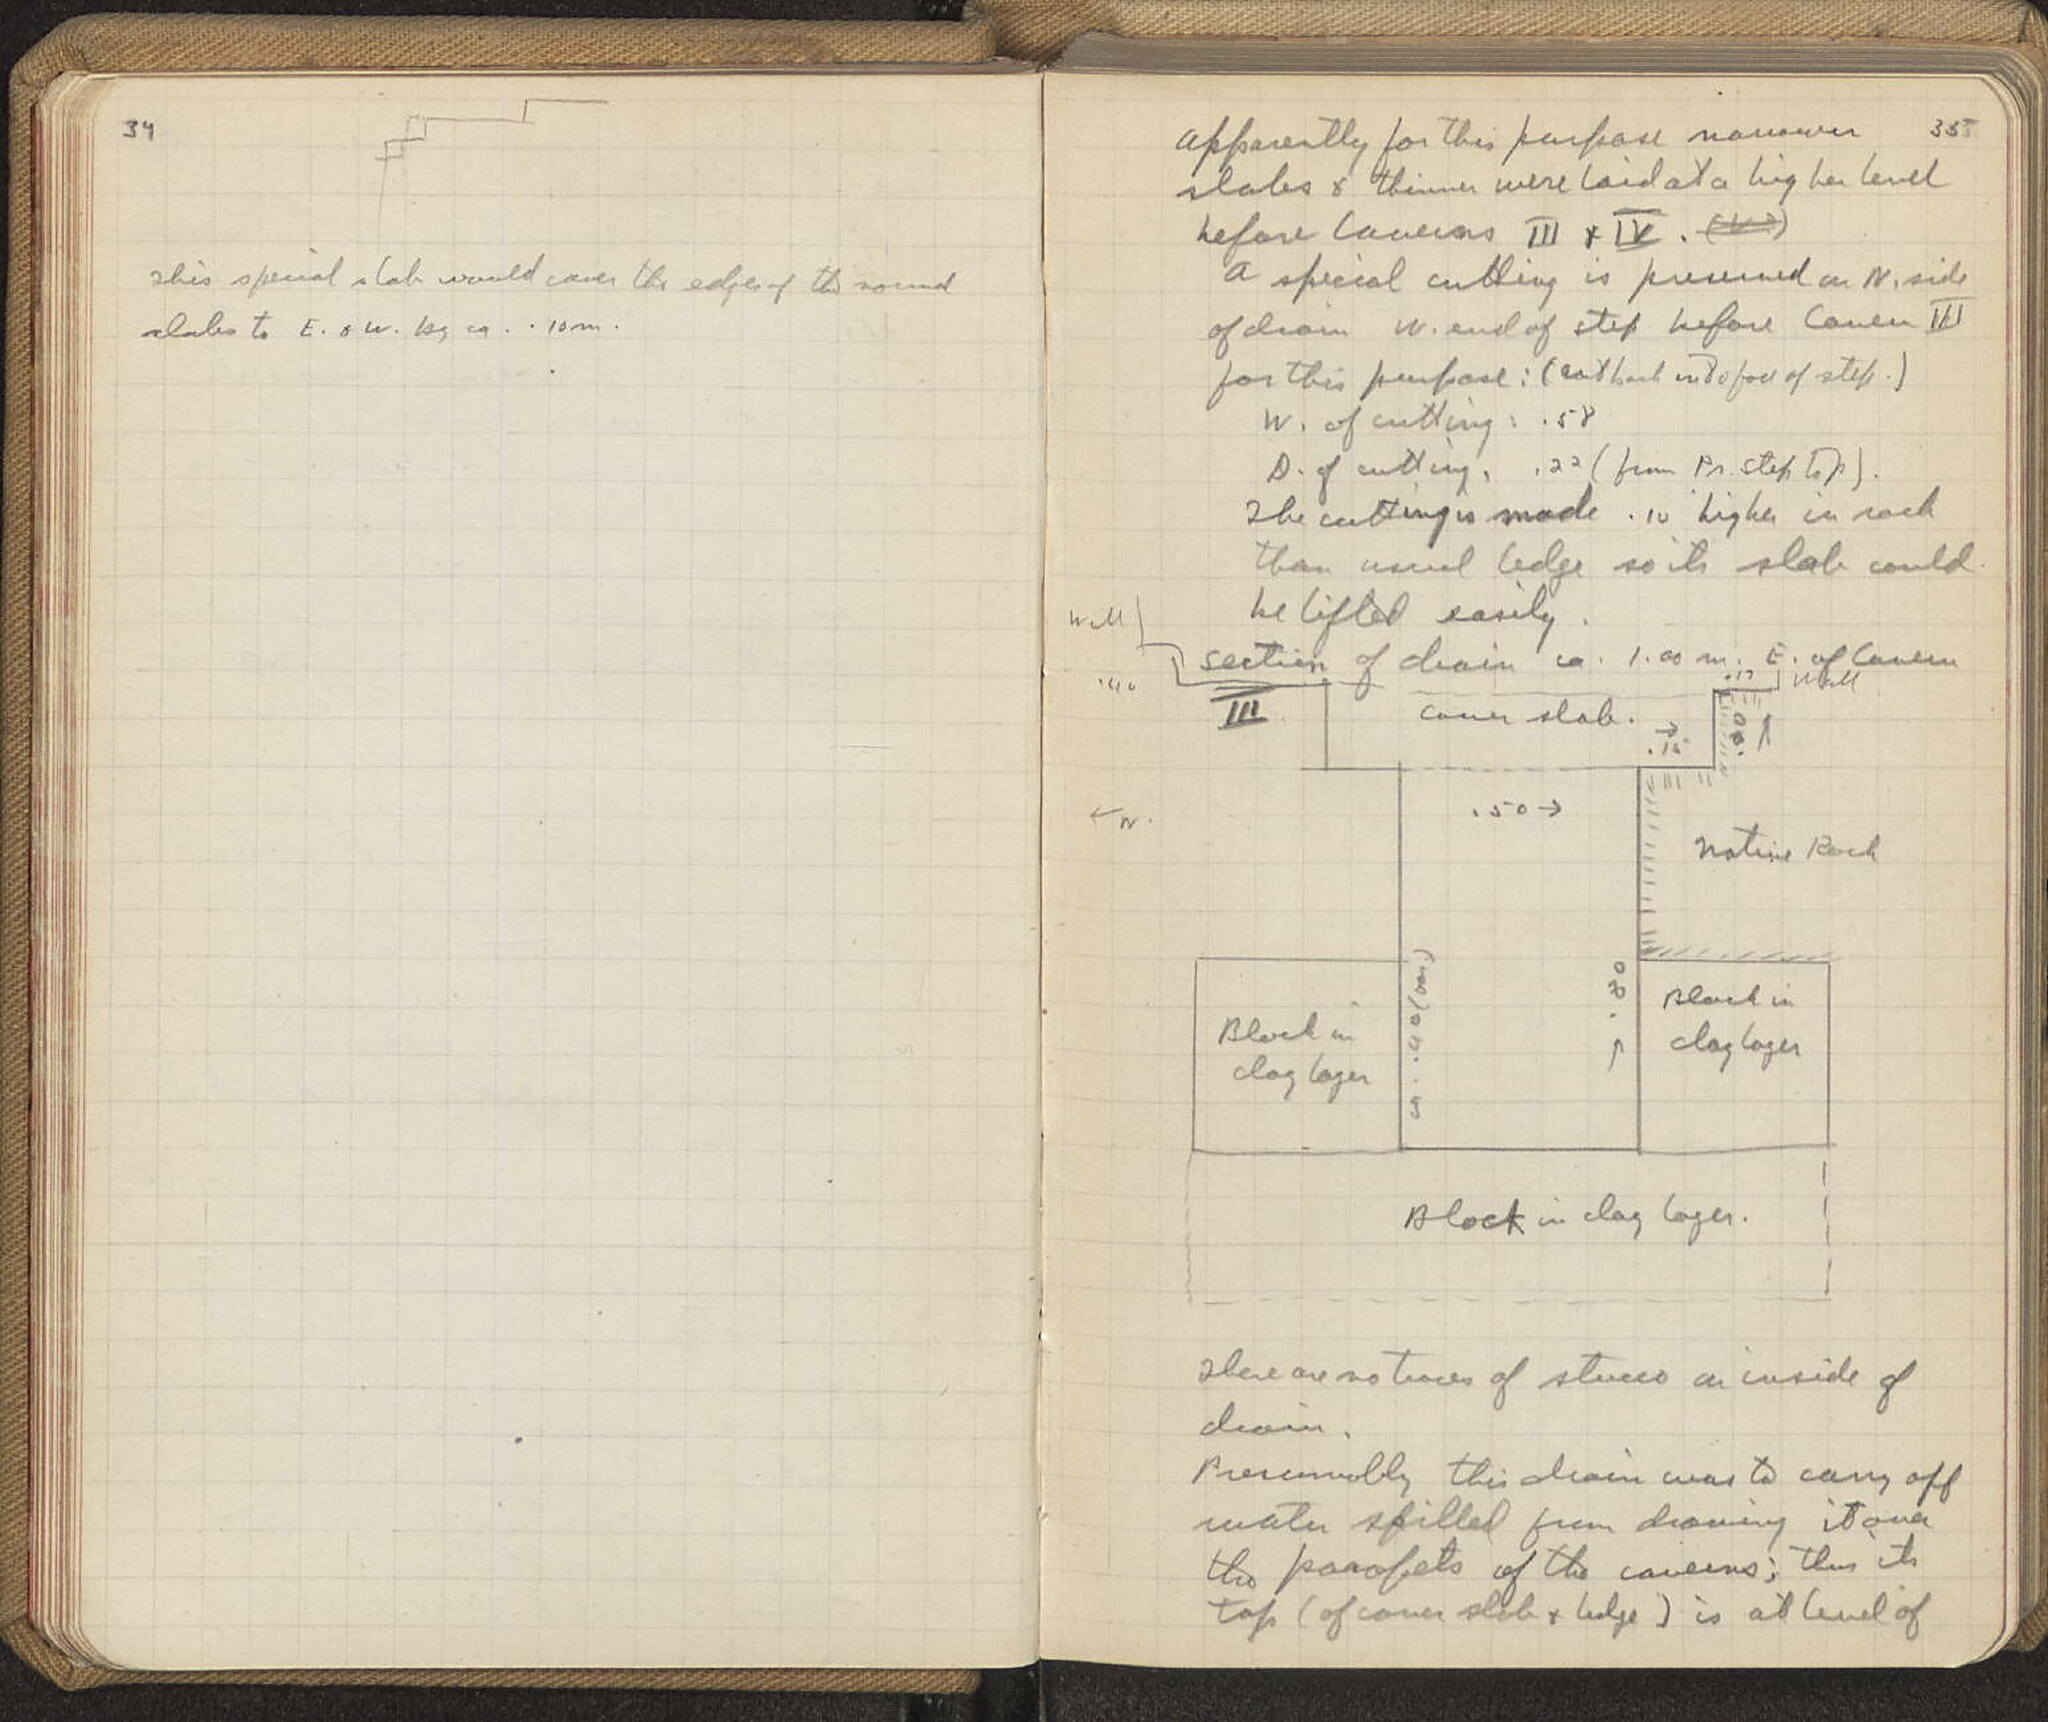 34
This special slab would cover the edges of the normal
slabs to E. & W. by ca. .10 m.
35
Apparently for this purpose narrower
slabs & thinner were laid at a higher level
before Caverns III & IV.
A special cutting is preserved on N. side
of drain W. end of step before Cavern III
for this purpose: (cut back into face of step.)
W. of cutting: .58
D. of cutting. .22 (from Pr. step top).
The cutting is made .10 higher in rock
than usual ledge so its slab could
be lifted easily.
Wall
Section of drain ca. 1.00 m. E. of Cavern
III
.40
.17
Wall
cover slab.
.15
.20
← N.
.50 →
Native Rock
.40 (var)
.20
Block in
clay layer
Block in
clay layer
Block in clay layer.
There are no traces of stucco on inside of
drain.
Presumably this drain was to carry off
water spilled from drawing it over
the parapets of the caverns; thus its
top (of cover slab & ledge) is at level of